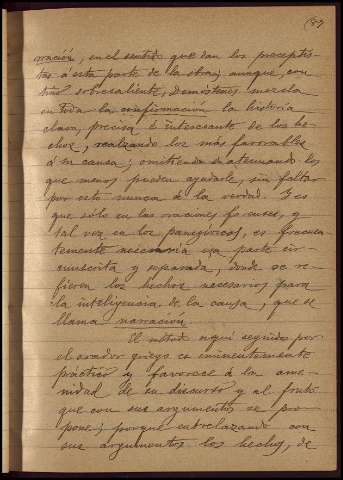 (87
rración, en el sentido que dan los preceptis-
tas á esta parte de la obra; aunque, con
tino sobresaliente, Demóstenes mezcla
en toda la confirmación la historia
clara, precisa é interesante de los he-
chos, realzando los más favorables
á su causa; omitiendo ó atenuando los
que menos pueden ayudarle, sin faltar
por esto nunca á la verdad. Y es
que sólo en las oraciones forenses, y
tal vez en los panegíricos, es frecuen-
temente necesaria esa parte cir-
cunscrita y separada, donde se re-
fieren los hechos necesarios para
la inteligencia de la causa, que se
llama narración.
El método aquí seguido por
el orador griego es eminentemente
práctico y favorece á la ame-
nidad de su discurso y al fruto
que con sus argumentos se pro-
pone; porque entrelazando con
sus argumentos los hechos, de